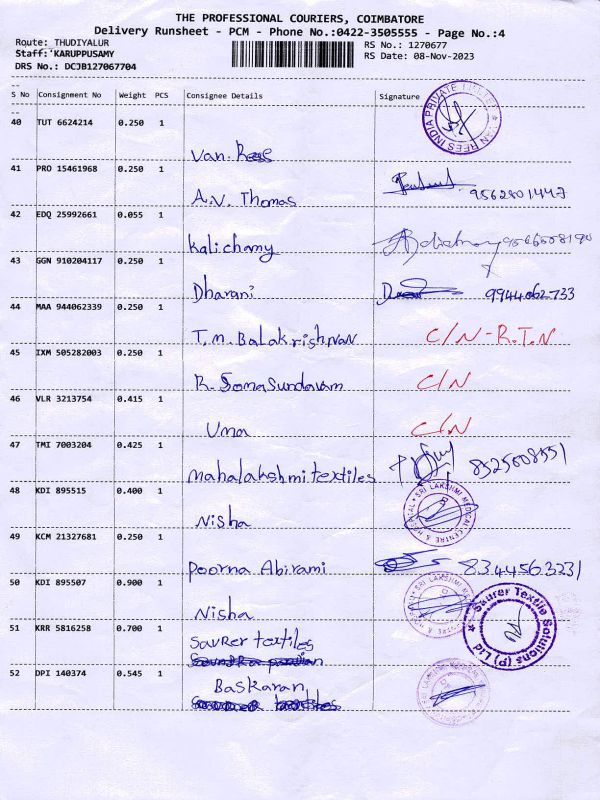 THE PROFESSIONAL COURIERS, COIMBATORE
Delivery Runsheet - PCM - Phone No.:0422-3505555 - Page No.:4
Route: THUDIYALUR RS No.: 1270677
Staff:'KARUPPUSAMY RS Date: 08-Nov-2023
DRS No.: DCJB127067704
--
S No Consignment No Weight PCS Consignee Details Signature
--
40 TUT 6624214 0.250 1
Van Rees
VAN REES INDIA PRIVATE LIMITED
41 PRO 15461968 0.250 1
A.V. Thomas 9562801447
42 EDQ 25992661 0.055 1
Kalichamy
43 GGN 910204117 0.250 1
Dharani 9944062733
44 MAA 944062339 0.250 1
T.M. Balakrishnan C/N-R.T.N
45 IXM 505282003 0.250 1
R. Somasundaram C/N
46 VLR 3213754 0.415 1
Uma C/N
47 TMI 7003204 0.425 1
Mahalakshmi textiles 8525008551
48 KDI 895515 0.400 1
Nisha
SRI LAKSHMI MEDICAL CENTRE & HOSPITAL
49 KCM 21327681 0.250 1
Poorna Abirami 8344563231
50 KDI 895507 0.900 1
Nisha
SRI LAKSHMI MEDICAL CENTRE & HOSPITAL
51 KRR 5816258 0.700 1
Saurer textiles
Saurer Textile Solutions (P) Ltd
52 DPI 140374 0.545 1
Baskaran